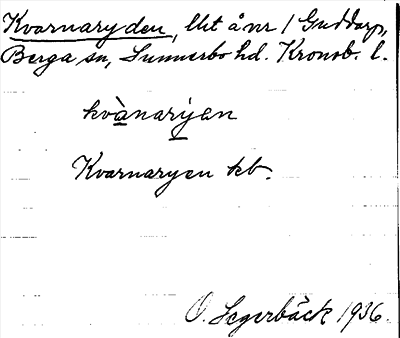 Kvarnaryden, llit å nr 1 Guddarp,
Berga sn, Sunnerbo hd. Kronob. l.
kvànaryen
Kvarnaryen kb.
O. Segerbäck 1936.